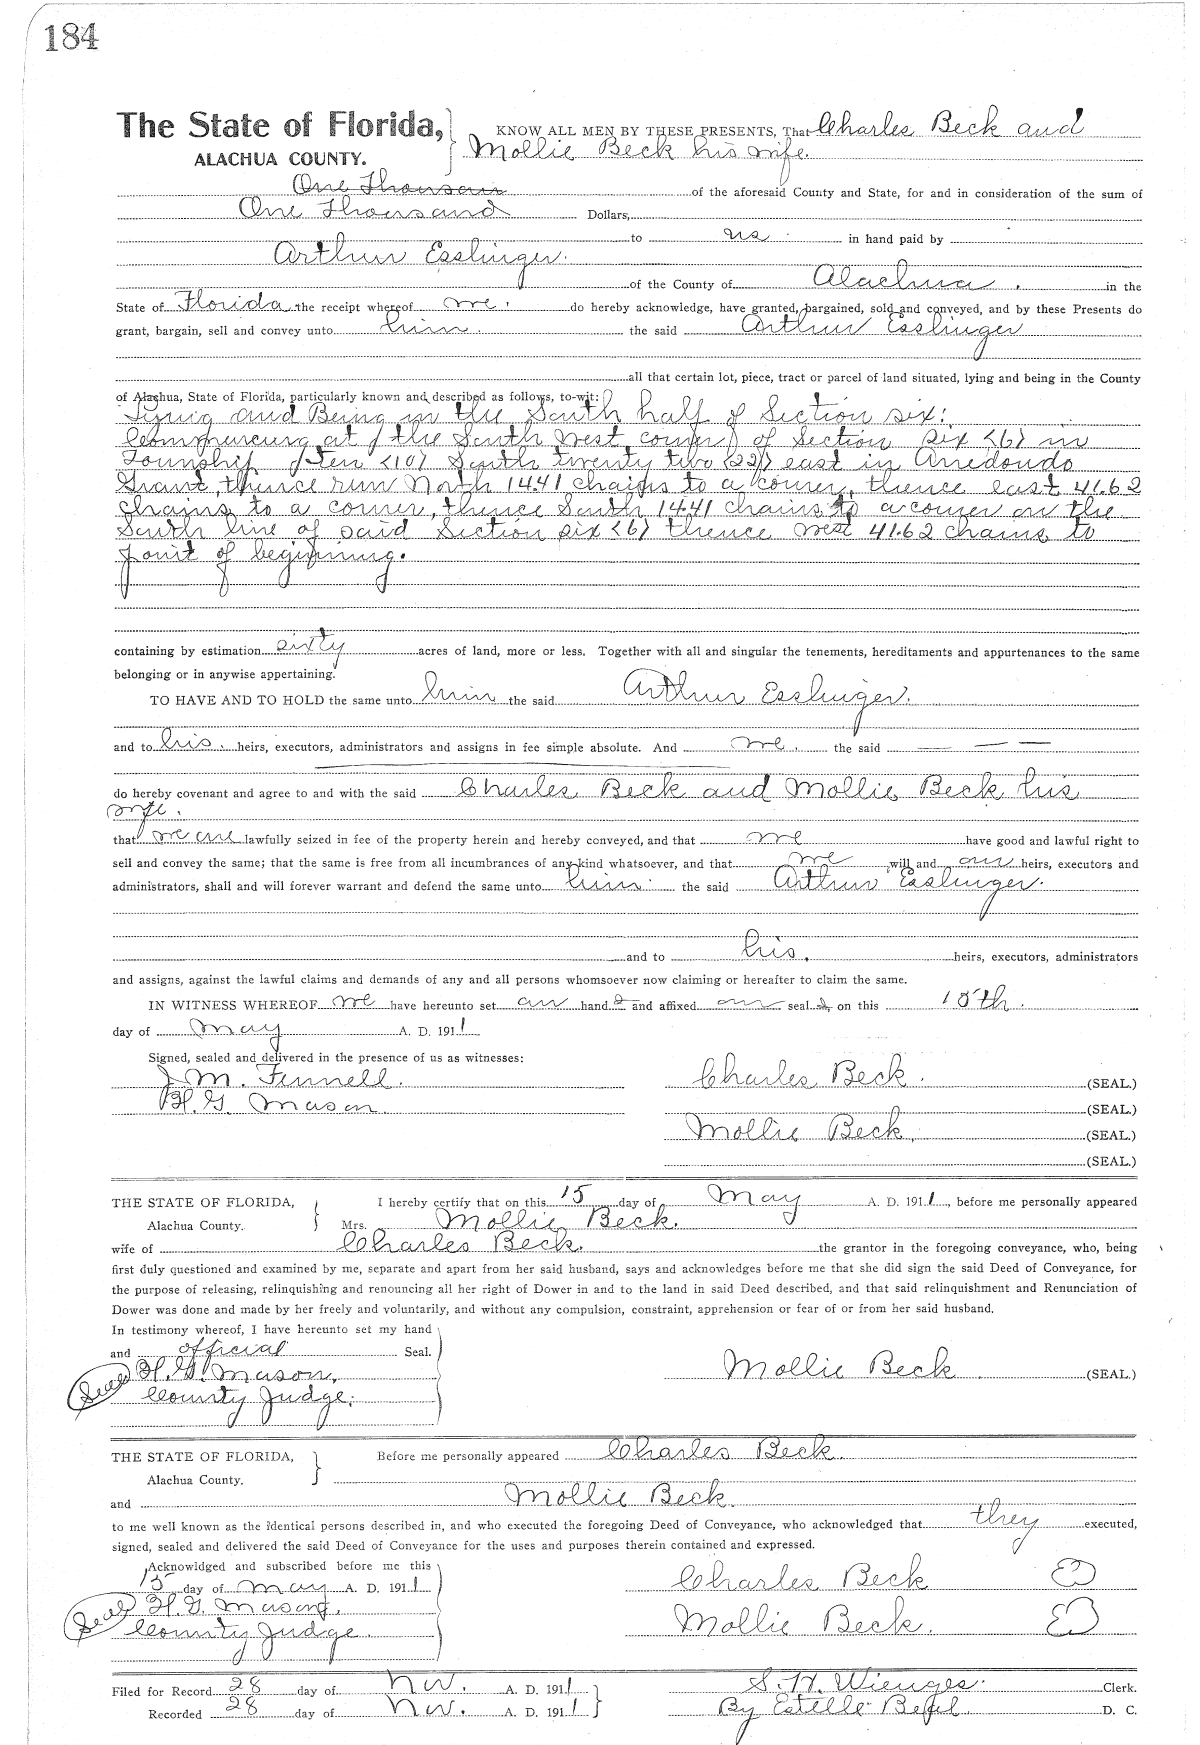 184
The State of Florida, KNOW ALL MEN BY THESE PRESENTS, That Charles Beck and
ALACHUA COUNTY. Mollie Beck his wife.
One Thousan of the aforesaid County and State, for and in consideration of the sum of
One Thousand Dollars,
to us in hand paid by
Arthur Esslinger.
of the County of Alachua. in the
State of Florida the receipt whereof we. do hereby acknowledge, have granted, bargained, sold and conveyed, and by these Presents do
grant, bargain, sell and convey unto him. the said Arthur Esslinger
all that certain lot, piece, tract or parcel of land situated, lying and being in the County
of Alachua, State of Florida, particularly known and described as follows, to-wit:
Lying and Being in the South half of Section six:
Commencing at the South West corner of Section six <6> in
Township Ten <10> South twenty two <22> east in Arredondo
Grant, thence run North 14.41 chains to a corner, thence east 41.62
chains to a corner, thence South 14.41 chains to a corner on the
South line of said Section six <6> thence west 41.62 chains to
point of beginning.
containing by estimation sixty acres of land, more or less. Together with all and singular the tenements, hereditaments and appurtenances to the same
belonging or in anywise appertaining.
TO HAVE AND TO HOLD the same unto him the said Arthur Esslinger.
and to his. heirs, executors, administrators and assigns in fee simple absolute. And we. the said — — —
do hereby covenant and agree to and with the said Charles Beck and Mollie Beck his
wife.
that we are lawfully seized in fee of the property herein and hereby conveyed, and that we have good and lawful right to
sell and convey the same; that the same is free from all incumbrances of any kind whatsoever, and that we will and our heirs, executors and
administrators, shall and will forever warrant and defend the same unto him. the said Arthur Esslinger.
and to his. heirs, executors, administrators
and assigns, against the lawful claims and demands of any and all persons whomsoever now claiming or hereafter to claim the same.
IN WITNESS WHEREOF we have hereunto set our hands and affixed our seals on this 15th.
day of May A. D. 1911
Signed, sealed and delivered in the presence of us as witnesses:
J.M. Fennell. Charles Beck. (SEAL.)
H. G. Mason (SEAL.)
Mollie Beck. (SEAL.)
(SEAL.)
THE STATE OF FLORIDA, I hereby certify that on this 15 day of May A. D. 1911, before me personally appeared
Alachua County. Mrs. Mollie Beck.
wife of Charles Beck. the grantor in the foregoing conveyance, who, being
first duly questioned and examined by me, separate and apart from her said husband, says and acknowledges before me that she did sign the said Deed of Conveyance, for
the purpose of releasing, relinquishing and renouncing all her right of Dower in and to the land in said Deed described, and that said relinquishment and Renunciation of
Dower was done and made by her freely and voluntarily, and without any compulsion, constraint, apprehension or fear of or from her said husband.
In testimony whereof, I have hereunto set my hand
and official Seal.
Seal H. G. Mason, Mollie Beck (SEAL.)
County Judge.
THE STATE OF FLORIDA, Before me personally appeared Charles Beck.
Alachua County.
and Mollie Beck.
to me well known as the identical persons described in, and who executed the foregoing Deed of Conveyance, who acknowledged that they executed,
signed, sealed and delivered the said Deed of Conveyance for the uses and purposes therein contained and expressed.
Acknowldged and subscribed before me this
15 day of May A. D. 1911 Charles Beck
Seal H. G. Mason, Mollie Beck.
County Judge.
Filed for Record 28 day of Nov. A. D. 1911 S. H. Wienges. Clerk.
Recorded 28 day of Nov. A. D. 1911 By Estelle D. C.